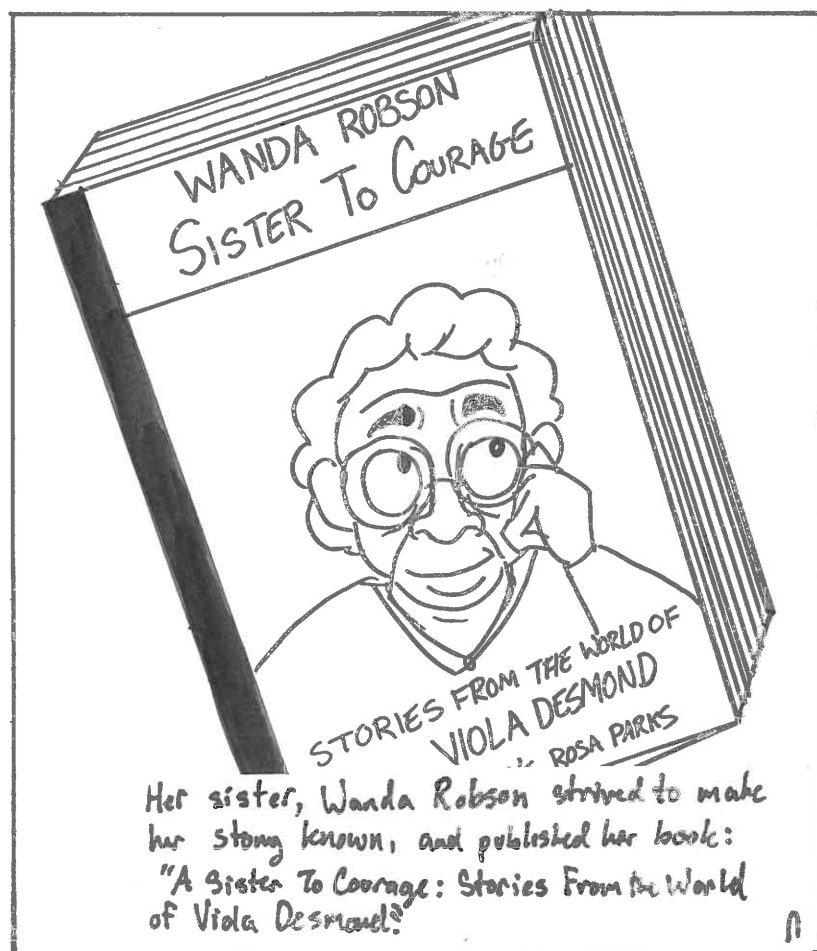 WANDA ROBSON
SISTER TO COURAGE
STORIES FROM THE WORLD OF
VIOLA DESMOND
ROSA PARKS
Her sister, Wanda Robson strived to make
her story known, and published her book:
"A Sister To Courage: Stories From the World
of Viola Desmond."